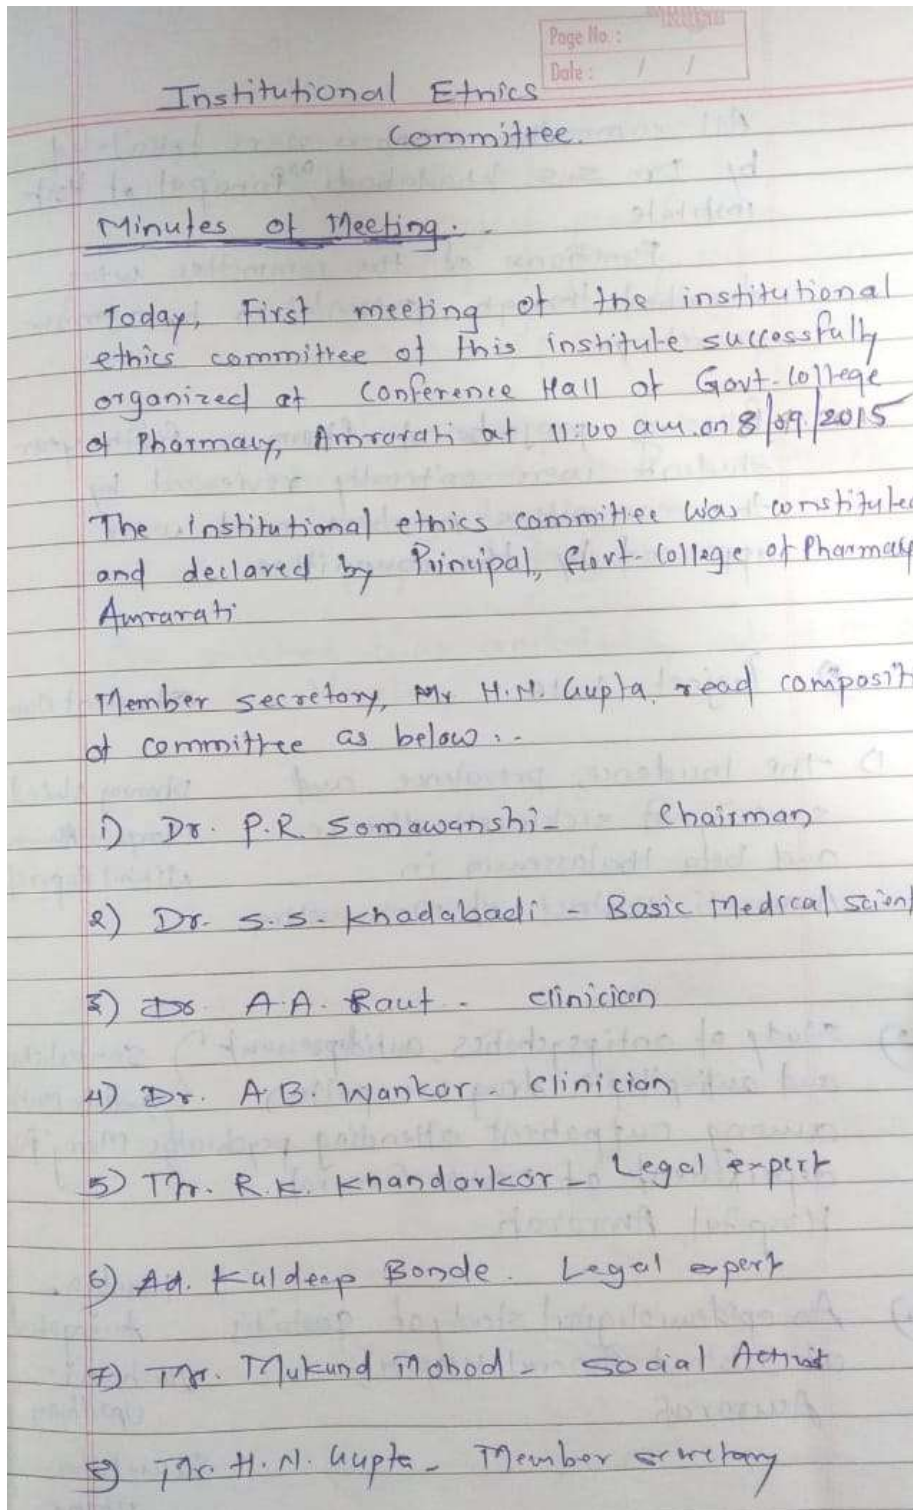 Page No. :
Date : / /
Institutional Ethics
Committee.
Minutes of Meeting. -
Today, First meeting of the institutional
ethics committee of this institute successfully
organized at Conference Hall of Govt-College
of Pharmacy, Amravati at 11:00 am. on 8/09/2015
The institutional ethics committee was constituted
and declared by Principal, Govt-College of Pharmacy
Amravati
Member secretary, Mr H.N. Gupta. read composit
of committee as below :-
1) Dr. P.R. Somawanshi - Chairman
2) Dr. S.S. Khadabadi - Basic Medical Scient
3) Dr. A.A. Raut - clinician
4) Dr. A.B. Wankar - clinician
5) Mr. R.K. Khandarkar - Legal expert
6) Ad. Kuldeep Bonde. Legal expert
7) Mr. Mukund Mohod - Social Activist
8) Mr. H.N. Gupta - Member secretary